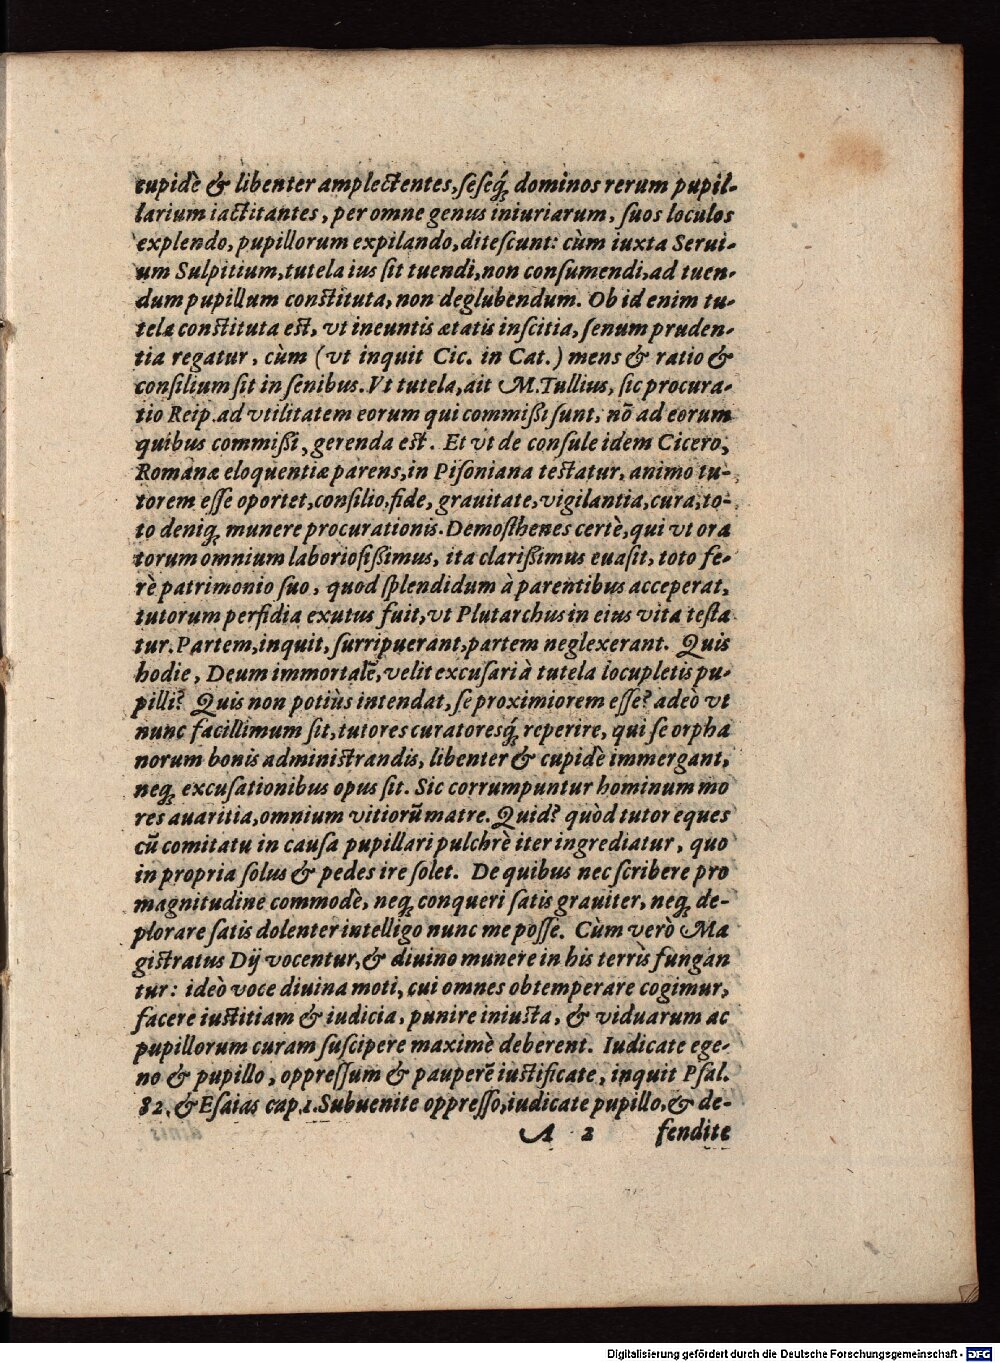 cupidè & libenter amplectentes, seseq́; dominos rerum pupil-
larium iactitantes, per omne genus iniuriarum, suos loculos
explendo, pupillorum expilando, ditescunt: cùm iuxta Serui-
um Sulpitium, tutela ius sit tuendi, non consumendi, ad tuen-
dum pupillum constituta, non deglubendum. Ob id enim tu-
tela constituta est, vt ineuntis ætatis inscitia, senum pruden-
tia regatur, cùm (vt inquit Cic. in Cat.) mens & ratio &
consilium sit in senibus. Vt tutela, ait M. Tullius, sic procura-
tio Reip. ad vtilitatem eorum qui commißi sunt, nō ad eorum
quibus commißi, gerenda est. Et vt de consule idem Cicero,
Romanæ eloquentiæ parens, in Pisoniana testatur, animo tu-
torem esse oportet, consilio, fide, grauitate, vigilantia, cura, to-
to deniq; munere procurationis. Demosthenes certè, qui vt ora
torum omnium laboriosißimus, ita clarißimus euasit, toto fe-
rè patrimonio suo, quod splendidum à parentibus acceperat,
tutorum perfidia exutus fuit, vt Plutarchus in eius vita testa
tur. Partem, inquit, surripuerant, partem neglexerant. Quis
hodie, Deum immortalē, velit excusari à tutela locupletis pu-
pilli? Quis non potiùs intendat, se proximiorem esse? adeò vt
nunc facillimum sit, tutores curatoresq́; reperire, qui se orpha
norum bonis administrandis, libenter & cupidè immergant,
neq; excusationibus opus sit. Sic corrumpuntur hominum mo
res auaritia, omnium vitiorū matre. Quid? quòd tutor eques
cū comitatu in causa pupillari pulchrè iter ingrediatur, quo
in propria solus & pedes ire solet. De quibus nec scribere pro
magnitudine commodè, neq; conqueri satis grauiter, neq; de-
plorare satis dolenter intelligo nunc me posse. Cùm verò Ma
gistratus Dij vocentur, & diuino munere in his terris fungan
tur: ideò voce diuina moti, cui omnes obtemperare cogimur,
facere iustitiam & iudicia, punire iniusta, & viduarum ac
pupillorum curam suscipere maximè deberent. Iudicate ege-
no & pupillo, oppressum & pauperē iustificate, inquit Psal.
82. & Esaias cap. 1. Subuenite oppresso, iudicate pupillo, & de-
A 2 fendite
Digitalisierung gefördert durch die Deutsche Forschungsgemeinschaft - DFG